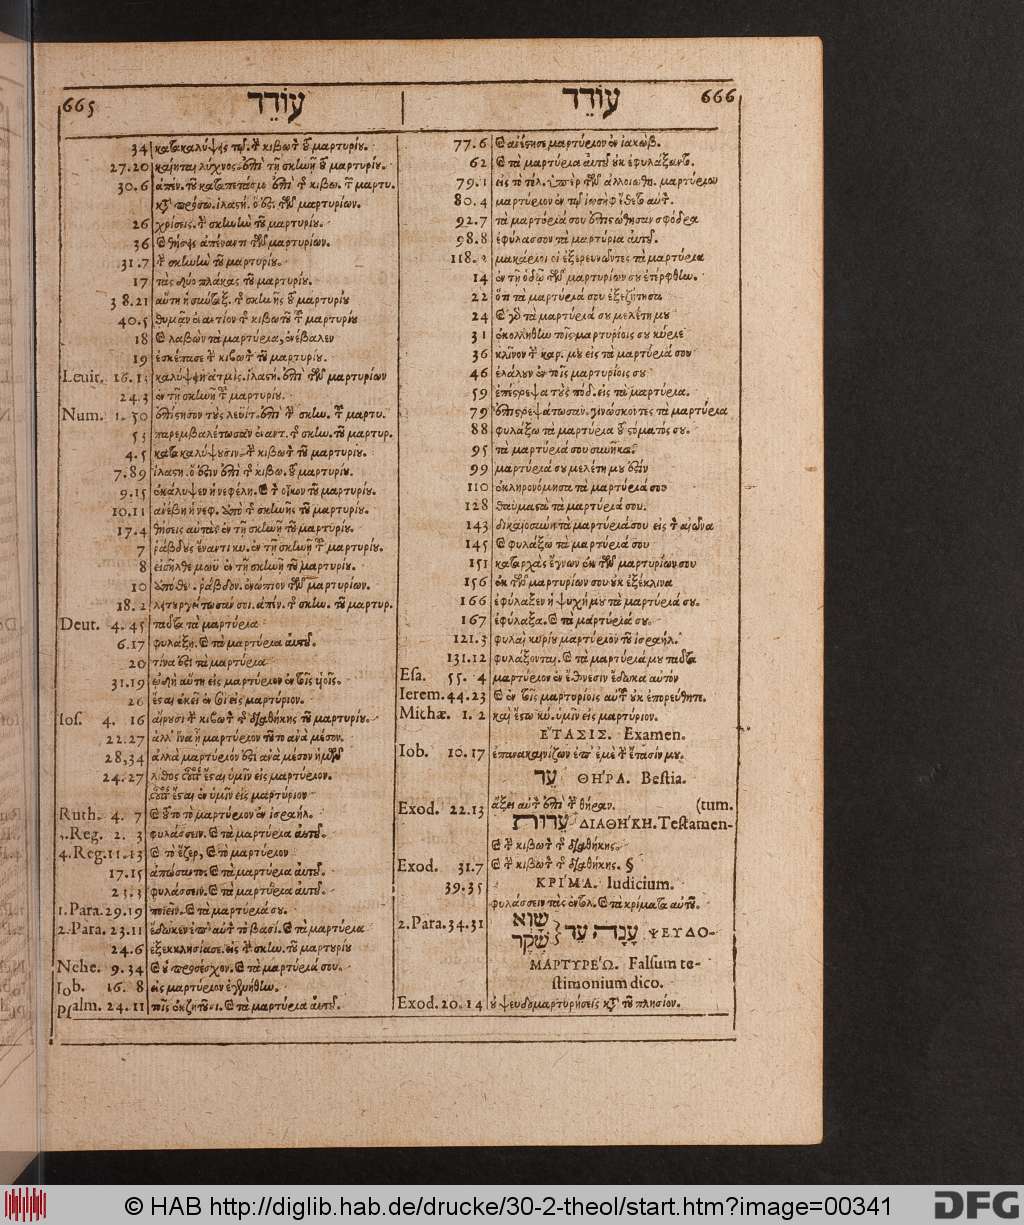 665 עוֹדֵד
34 κατακαλύψεις τὴν. τ̀ κιβωτ̀ τ͂ μαρτυρίου.
27.20 καίηται λύχνος. ἐπὶ τῇ σκηνῇ τ͂ μαρτυρίου.
30.6 ἀπέν. τοῦ καταπετάσμα. ἐπὶ τ͂ κιβω. τ͂ μαρτυ.
ἱλαστή. τῶν μαρτυρίων.
26 χρίσεις. τ̀ σκηνὴν τοῦ μαρτυρίου.
36 Καὶ θήσεις ἀπέναντι τῶν μαρτυρίων.
31.7 τ̀ σκηνὴν τοῦ μαρτυρίου.
17 τὰς δύο πλάκας τοῦ μαρτυρίου.
38.21 αὕτη ἡ σύνταξ. τ͂ σκηνῆς τ͂ μαρτυρίου
40.5 ἐναντίον τ͂ κιβωτοῦ τ͂ μαρτυρίου
18 Καὶ λαβὼν τὰ μαρτύρια, ἐνέβαλεν
19 ἐσκέπασε τ̀ κιβωτ̀ τοῦ μαρτυρίου.
Leuit. 16.13 καλύψη ἡ ἀτμὶς. ἱλαστή. ἐπὶ τῶν μαρτυρίων
24.3 ἐν τῇ σκηνῇ τ͂ μαρτυρίου.
Num. 1.50 ἐπίστησον τοὺς λευίτ. ἐπὶ τ̀ σκην. τ͂ μαρτυ.
53 παρεμβαλέτωσαν ἐναντ. τ͂ σκην. τοῦ μαρτυρ.
4.5 κατακαλύψουσιν. τ̀ κιβωτ̀ τοῦ μαρτυρίου.
7.89 ἱλαστη. ὅ ἐστιν ἐπὶ τ͂ κιβω. τ͂ μαρτυρίου.
9.15 ἐκάλυψεν ἡ νεφέλη. τ̀ οἶκον τοῦ μαρτυρίου.
10.11 ἀνέβη ἡ νεφ. ἀπὸ τ͂ σκηνῆς τοῦ μαρτυρίου.
17.4 θήσεις αὐτὰς ἐν τῇ σκηνῇ τοῦ μαρτυρίου.
7 ῥάβδους ἔναντι κυ. ἐν τῇ σκηνῇ τ͂ μαρτυρίου.
8 εἰσῆλθε μωῦ. ἐν τῇ σκηνῇ τοῦ μαρτυρίου.
10 ἀπόθε. ῥάβδον. ἐνώπιον τῶν μαρτυρίων.
18.2 λειτουργείτωσάν σοι. ἀπέν. τ͂ σκην. τοῦ μαρτυρ.
Deut. 4.45 ταῦτα τὰ μαρτύρια
6.17 φυλάξῃ. Καὶ τὰ μαρτύρια αὐτοῦ.
20 τίνα ἐστὶ τὰ μαρτύρια
31.19 ᾠδὴ αὕτη εἰς μαρτύριον ἐν τοῖς υἱοῖς.
26 ἔσται ἐκεῖ ἐν σοὶ εἰς μαρτύριον.
Ios. 4. 16 αἴρουσι τ̀ κιβωτ̀ τ͂ διαθήκης τοῦ μαρτυρίου.
22.27 ἀλλ' ἵνα ᾖ μαρτύριον τοῦτο ἀνὰ μέσον.
28,34 ἀλλὰ μαρτύριόν ἐστι ἀνὰ μέσον ἡμῶν
24.27 λίθος οὗτος ἔσται ὑμῖν εἰς μαρτύριον.
οὗτος ἔσται ἐν ὑμῖν εἰς μαρτύριον
Ruth. 4. 7 Καὶ τοῦτο μαρτύριον ἐν ἰσραήλ.
3.Reg. 2. 3 φυλάσσειν. Καὶ τὰ μαρτύρια αὐτοῦ.
4.Reg. 11.13 Καὶ τὸ ἕζερ, Καὶ τὸ μαρτύριον
17.15 ἀπώσαντο. Καὶ τὰ μαρτύρια αὐτοῦ.
23.3 φυλάσσειν. Καὶ τὰ μαρτύρια αὐτοῦ.
1.Para. 29.19 ποιεῖν. Καὶ τὰ μαρτύριά σου.
2.Para. 23.11 ἔδωκεν ἐπ' αὐτ̀ τὸ βασί. Καὶ τὰ μαρτύρια
24.6 ἐξεκκλησίασε. εἰς τ̀ σκην. τοῦ μαρτυρίου
Nehe. 9.34 Καὶ οὐ προσέσχον. Καὶ τὰ μαρτύριά σου.
Iob. 16. 8 εἰς μαρτύριον ἐγενήθην.
Psalm. 24.11 τοῖς ἐκζητοῦσι. Καὶ τὰ μαρτύρια αὐτοῦ.
עוֹדֵד 666
77.6 Καὶ ἀνέστησε μαρτύριον ἐν ἰακώβ.
62 Καὶ τὰ μαρτύρια αὐτοῦ οὐκ ἐφυλάξαντο.
79.1 εἰς τὸ τέλ. ὑπὲρ τῶν ἀλλοιωθη. μαρτύριον
80.4 μαρτύριον ἐν τῷ ἰωσὴφ ἔθετο αὐτ̀.
92.7 τὰ μαρτύριά σου ἐπιστώθησαν σφόδρα
98.8 ἐφύλασσον τὰ μαρτύρια αὐτοῦ.
118. 2 μακάριοι οἱ ἐξερευνῶντες τὰ μαρτύρια
14 ἐν τῇ ὁδῷ τῶν μαρτυρίων σου ἐτέρφθην.
22 ὅτι τὰ μαρτύριά σου ἐξεζήτησα
24 Καὶ γὰρ τὰ μαρτύριά σου μελέτη μου
31 ἐκολλήθην τοῖς μαρτυρίοις σου κύριε
36 κλῖνον τ̀ καρ. μου εἰς τὰ μαρτύριά σου
46 ἐλάλουν ἐν τοῖς μαρτυρίοις σου
59 ἐπέστρεψα τοὺς πόδ. εἰς τὰ μαρτύρια.
79 ἐπιστρεψάτωσαν. γινώσκοντες τὰ μαρτύρια
88 φυλάξω τὰ μαρτύρια τ͂ στόματός σου.
95 τὰ μαρτύριά σου συνῆκα.
99 μαρτύριά σου μελέτη μου ἐστίν
110 ἐκληρονόμησα τὰ μαρτύριά σου
128 θαυμαστὰ τὰ μαρτύριά σου.
143 δικαιοσύνη τὰ μαρτύριά σου εἰς τ̀ αἰῶνα
145 Καὶ φυλάξω τὰ μαρτύριά σου
151 καταρχὰς ἔγνων ἐκ τῶν μαρτυρίων σου
156 ἐκ τῶν μαρτυρίων σου οὐκ ἐξέκλινα
166 ἐφύλαξεν ἡ ψυχή μου τὰ μαρτύριά σου.
167 ἐφύλαξα. Καὶ τὰ μαρτύριά σου.
121.3 φυλαὶ κυρίου μαρτύριον τοῦ ἰσραήλ.
131.12 φυλάξονται. Καὶ τὰ μαρτύριά μου ταῦτα
Esa. 55. 4 μαρτύριον ἐν ἔθνεσιν ἔδωκα αὐτὸν
Ierem. 44.23 Καὶ ἐν τοῖς μαρτυρίοις αὐτ͂ οὐκ ἐπορεύθητε.
Michæ. 1. 2 καὶ ἔστω κύ. ὑμῖν εἰς μαρτύριον.
ἜΤΑΣΙΣ. Examen.
Iob. 10.17 ἐπανακαινίζων ἐπ' ἐμὲ τ̀ ἔτασίν μου.
עֵר ΘΗΡΑ. Bestia.
Exod. 22.13 ἄξει αὐτ̀ ἐπὶ τ̀ θήραν. (tum.
עֵדוּת ΔΙΑΘΗΚΗ. Testamen-
Καὶ τ̀ κιβωτ̀ τ͂ διαθήκης.
Exod. 31.7 Καὶ τ̀ κιβωτ̀ τ͂ διαθήκης. §
39.35 ΚΡΙΜΑ. Iudicium.
2.Para. 34.31 φυλάσσειν τὰς ἐντολ. Καὶ τὰ κρίματα αὐτοῦ.
שָׁוא
שֶׁקֶר עָנָה עֵד ΨΕΥΔΟ-
ΜΑΡΤΥΡΕΩ. Falsum te-
stimonium dico.
Exod. 20.14 οὐ ψευδομαρτυρήσεις κτ̀ τοῦ πλησίον.
© HAB http://diglib.hab.de/drucke/30-2-theol/start.htm?image=00341
DFG